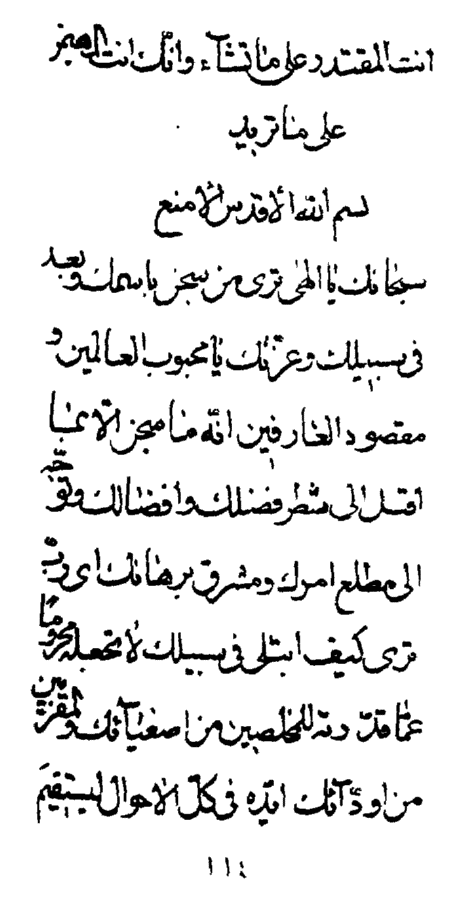 انت المقتدر على ما تشآء و انّك انت المهيمن
على ما تريد
بسم الله الاقدس الامنع
سبحانك يا الهى ترى من سجن باسمك و بعد
فى سبيلك و عزّتك يا محبوب العالمين و
مقصود العارفين انّه ما سجن الّا بما
اقبل الى شطر فضلك و افضالك و توجّه
الى مطلع امرك و مشرق برهانك اى ربّ
ترى كيف ابتلى فى سبيلك لا تجعله محروما
عمّا قدّرته للمخلصين من اصفيآئك و المقرّبين
من اودّآئك ايّده فى كلّ الاحوال ليستقيم
١١٤